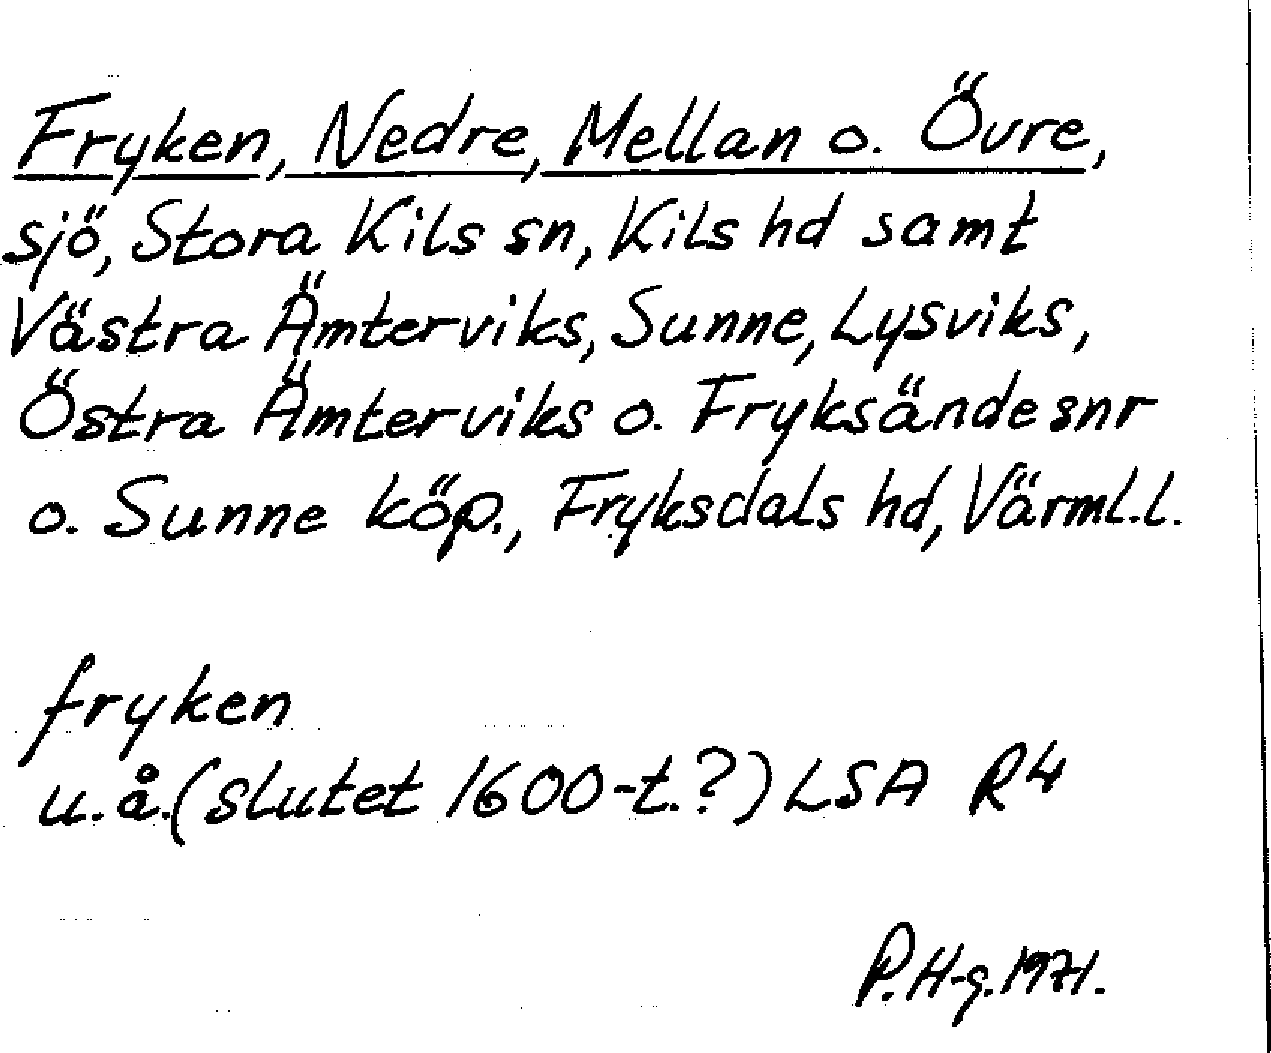 Fryken, Nedre, Mellan o. Övre,
sjö, Stora Kils sn, Kils hd samt
Västra Ämterviks, Sunne, Lysviks,
Östra Ämterviks o. Fryksände snr
o. Sunne köp., Fryksdals hd, Värml.l.
fryken
u.å.(slutet 1600-t.?) LSA R4
P.H-g.1971.